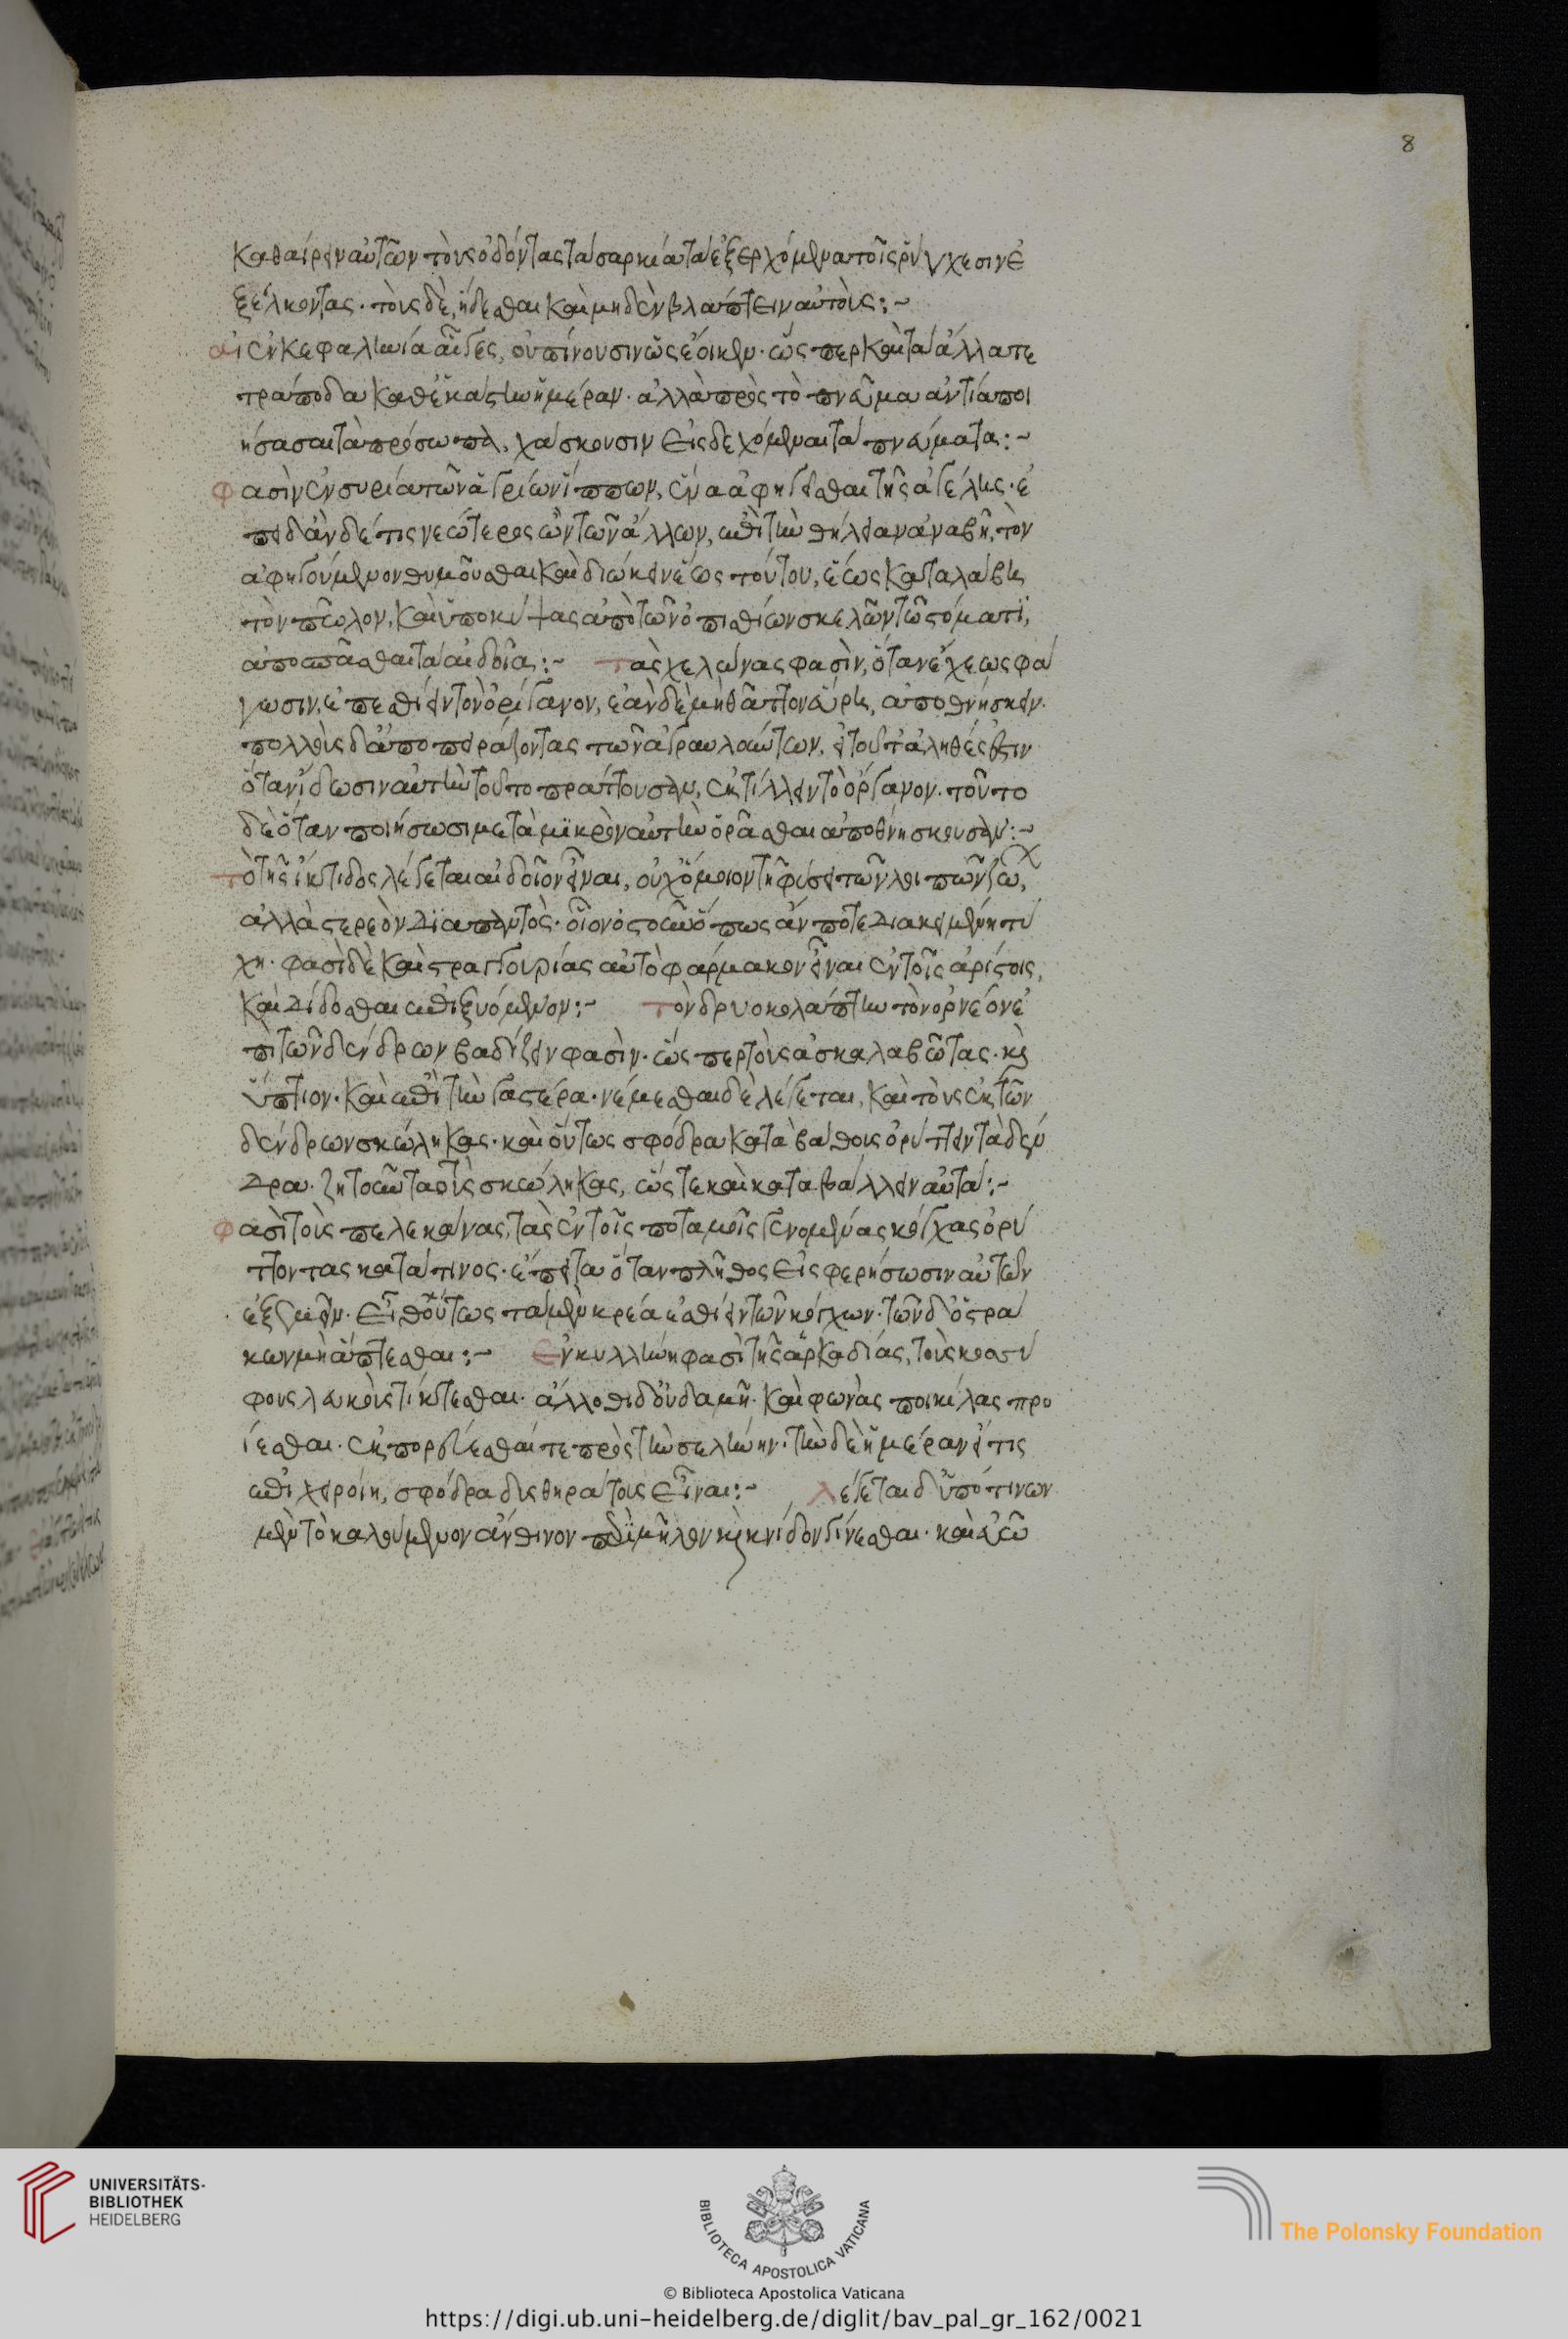 8
καθαίρειν αὐτῶν τοὺς ὀδόντας τὰ σαρκία τὰ ἐξερχόμενα τοῖς ῥύγχεσιν ἐ
ξέλκοντας· τοὺς δὲ, ἥδεσθαι καὶ μηδὲν βλάπτειν αὐτούς:~
αἱ ἐν κεφαληνία αἶγες, οὐ πίνουσιν ὡς ἔοικεν· ὥσπερ καὶ τἆλλα τε
τράποδα καθ' ἑκάστην ἡμέραν· ἀλλὰ πρὸς τὸ πνεῦμα ἀντία ποι
ήσασαι τὰ πρόσωπα, χάσκουσιν εἰσδεχόμεναι τὰ πνεύματα:~
φασὶν ἐν συρία τῶν ἀγρίων ἵππων, ἕνα ἀφηγεῖσθαι τῆς ἀγέλης· ἐ
πειδὰν δέ τις νεώτερος ὢν τῶν ἄλλων, ἐπὶ τὴν θήλειαν ἀναβῇ, τὸν
ἀφηγούμενον θυμοῦσθαι καὶ διώκειν ἕως τούτου, ἕως καταλάβῃ
τὸν πῶλον, καὶ ὑποκύψας ἀπὸ τῶν ὀπισθίων σκελῶν τῷ στόματι,
ἀποσπᾶσθαι τὰ αἰδοῖα:~ τὰς χελώνας φασὶν, ὅταν ἔχεως φά
γωσιν, ἐπεσθίειν τὸν ὀρίγανον, ἐὰν δὲ μὴ θᾶττον εὕρῃ, ἀποθνήσκειν·
πολλοὺς δ' ἀποπειράζοντας τῶν ἀγραυλούντων, εἰ τοῦτ' ἀληθές ἐστιν
ὅταν ἴδωσιν αὐτὴν τοῦτο πράττουσαν, ἐκτίλλειν τὸ ὀρίγανον· τοῦτο
δὲ ὅταν ποιήσωσι μετὰ μικρὸν αὐτὴν ὁρᾶσθαι ἀποθνήσκουσαν:~
τὸ τῆς ἴκτιδος λέγεται αἰδοῖον εἶναι, οὐχ ὅμοιον τῇ φύσει τῶν λοιπῶν ζώ,
ἀλλὰ στερεὸν διαπαντὸς· οἷον ὀστοῦν ὅπως ἄν ποτε διακειμένη τύ
χη· φασὶ δὲ καὶ στραγγουρίας αὐτὸ φάρμακον εἶναι ἐν τοῖς ἀρίστοις,
καὶ δίδοσθαι ἐπιξυόμενον:~ τὸν δρυοκολάπτην τὸν ὄρνεον ἐ
πὶ τῶν δένδρων βαδίζειν φασὶν· ὥσπερ τοὺς ἀσκαλαβώτας· καὶ
ὕπτιον· καὶ ἐπὶ τὴν γαστέρα· νέμεσθαι δὲ λέγεται, καὶ τοὺς ἐκ τῶν
δένδρων σκώληκας· καὶ οὕτως σφόδρα κατὰ βάθους ὀρύττειν τὰ δέν
δρα· ζητοῦντα τοὺς σκώληκας, ὥστε καὶ καταβάλλειν αὐτά:~
φασὶ τοὺς πελεκάνας, τὰς ἐν τοῖς ποταμοῖς γενομένας κόγχας ὀρύ
ττοντας καταπίνειν· ἔπειτα ὅταν πλῆθος εἰσφερήσωσιν αὐτῶν
ἐξεμεῖν· εἶθ' οὕτως τὰ μὲν κρέα ἐσθίειν τῶν κόγχων· τῶν δ' ὀστρά
κων μὴ ἅπτεσθαι:~ ἐν κυλλήνη φασὶ τῆς ἀρκαδίας, τοὺς κοσσύ
φους λευκοὺς τίκτεσθαι· ἄλλοθι δ' οὐδαμῇ· καὶ φωνὰς ποικίλας προ
ίεσθαι· ἐκπορεύεσθαί τε πρὸς τὴν σελήνην· τὴν δὲ ἡμέραν εἴ τις
ἐπιχειροίη, σφόδρα δυσθηράτους εἶναι:~ λέγεται δ' ὑπό τινων
μὲν τὸ καλούμενον ἄνθινον περὶ μῆλον καὶ κνίδον γίνεσθαι· καὶ εὐω
UNIVERSITÄTS-
BIBLIOTHEK
HEIDELBERG
BIBLIOTECA APOSTOLICA VATICANA
The Polonsky Foundation
© Biblioteca Apostolica Vaticana
https://digi.ub.uni-heidelberg.de/diglit/bav_pal_gr_162/0021